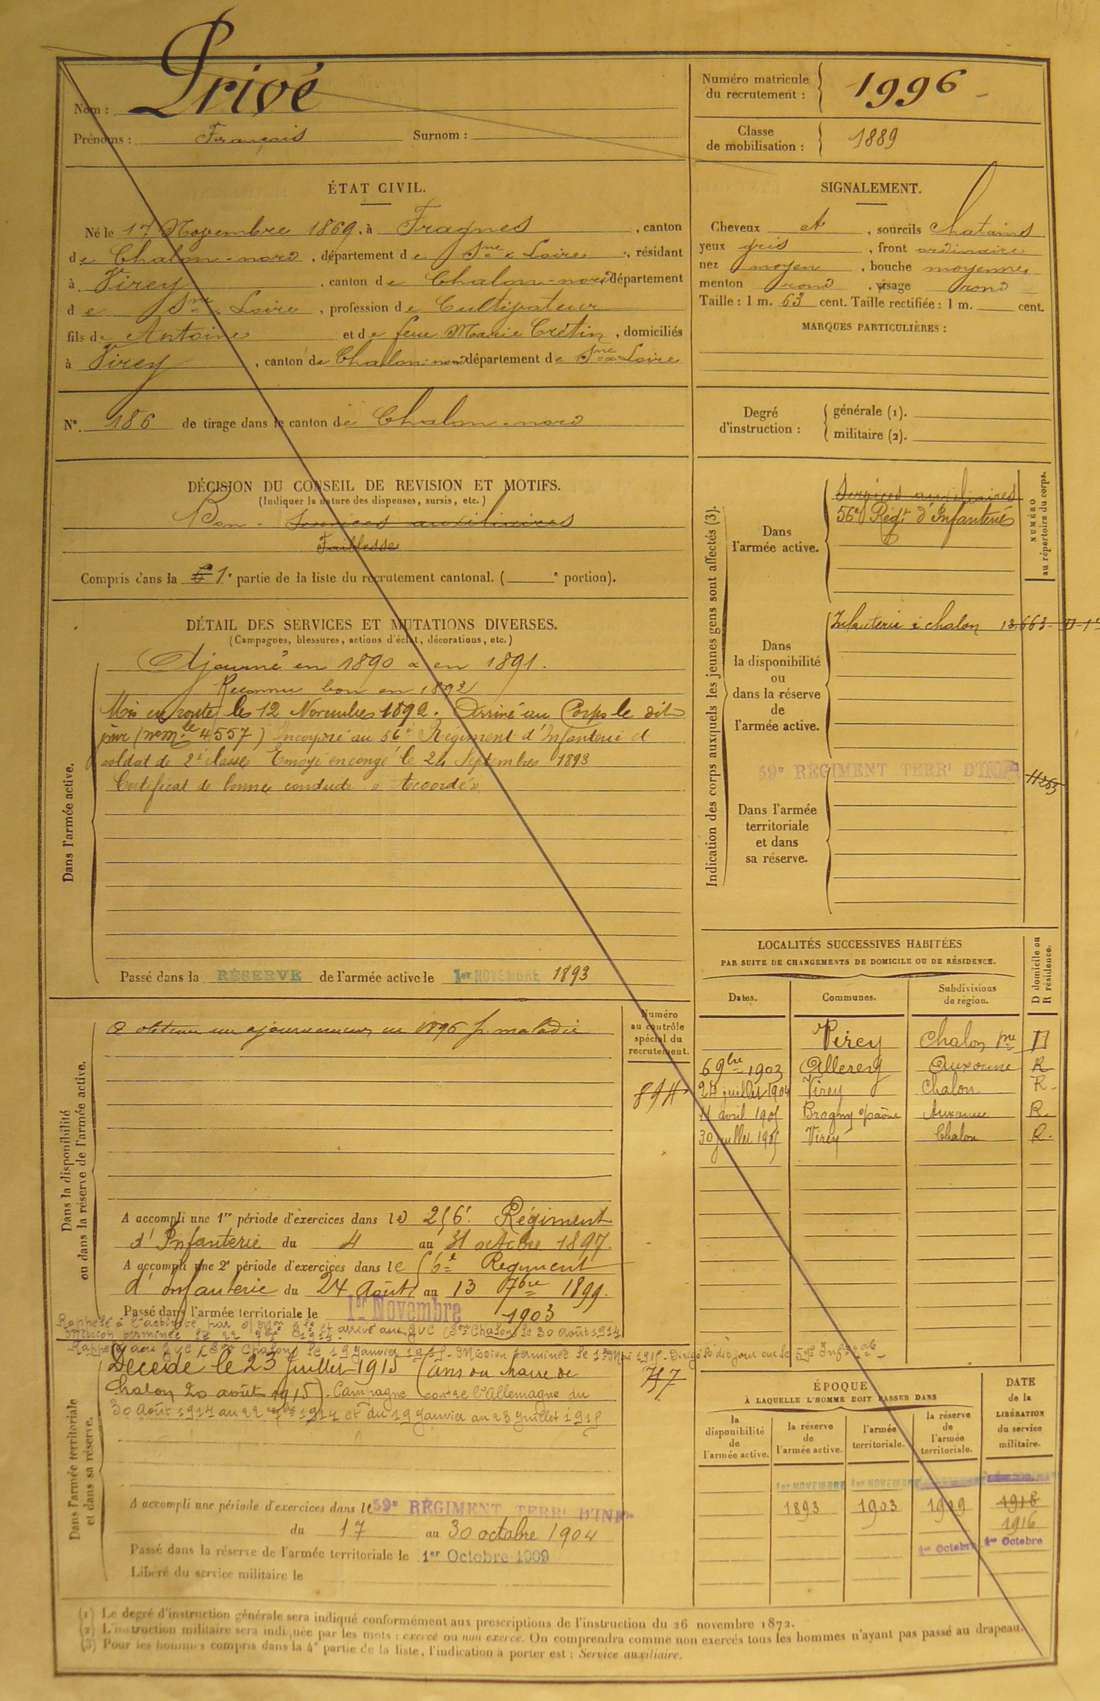 Nom : Privé
Prénoms : François Surnom :
Numéro matricule du recrutement : 1996
Classe de mobilisation : 1889
ÉTAT CIVIL.
Né le 17 Novembre 1869, à Fragnes, canton
de Chalon-nord, département de Sne & Loire, résidant
à Virey, canton de Chalon-nord département
de Sne Loire, profession de Cultivateur
fils de Antoine et de feue Marie Cretin, domiciliés
à Virey, canton de Chalon-nord département de Sne Loire
N° 186 de tirage dans le canton de Chalon-nord
SIGNALEMENT.
Cheveux et, sourcils chatains
yeux gris, front ordinaire
nez moyen, bouche moyenne
menton rond, visage rond
Taille : 1 m. 63 cent. Taille rectifiée : 1 m. cent.
MARQUES PARTICULIÈRES :
Degré d'instruction :
générale (1).
militaire (2).
DÉCISION DU CONSEIL DE REVISION ET MOTIFS.
(Indiquer la nature des dispenses, sursis, etc.)
Bon. Services auxiliaires
Faiblesse
Compris dans la 1e partie de la liste du recrutement cantonal. ( e portion).
DÉTAIL DES SERVICES ET MUTATIONS DIVERSES.
(Campagnes, blessures, actions d'éclat, décorations, etc.)
Dans l'armée active.
Ajourné en 1890 & en 1891.
Reconnu bon en 1892
Mis en route le 12 Novembre 1892. Arrivé au Corps le dit
jour (n° mle 4557) incorporé au 56e Régiment d'Infanterie et
soldat de 2e classe Envoyé en congé le 24 Septembre 1893
Certificat de bonne conduite "Accordé"
Passé dans la RÉSERVE de l'armée active le 1er NOVEMBRE 1893
Indication des corps auxquels les jeunes gens sont affectés (3).
NUMÉRO au répertoire du corps.
Dans l'armée active.
Services auxiliaires
56e Régt d'Infanterie
Dans la disponibilité ou dans la réserve de l'armée active.
Infanterie à Chalon 13663
59e RÉGIMENT TERRl D'INFie
Dans l'armée territoriale et dans sa réserve.
LOCALITÉS SUCCESSIVES HABITÉES
PAR SUITE DE CHANGEMENTS DE DOMICILE OU DE RÉSIDENCE.
Dates. Communes. Subdivisions de région. D domicile ou R résidence.
Virey Chalon sne D
6 9bre 1903 Allerey Auxonne R
27 juillet 1904 Virey Chalon R
11 avril 1905 Bragny s/saône Auxonne R.
30 juillet 1905 Virey Chalon R.
Dans la disponibilité ou dans la réserve de l'armée active.
Numéro au contrôle spécial du recrutement.
A obtenu un ajournement en 1896 pr maladie
894
A accompli une 1re période d'exercices dans le 256e Régiment
d'Infanterie du 4 au 31 octobre 1897
A accompli une 2e période d'exercices dans le 56e Régiment
d'Infanterie du 24 Août au 13 7bre 1899.
Passé dans l'armée territoriale le 1er Novembre 1903
Dans l'armée territoriale et dans sa réserve.
Décédé le 23 juillet 1915 (avis du Maire de
Chalon 20 août 1915). Campagne contre l'Allemagne du
30 Août 1914 au 22 1914 et du 19 Janvier au 23 juillet 1915
757
A accompli une période d'exercices dans le 59e RÉGIMENT TERRl D'INFie
du 17 au 30 octobre 1904
Passé dans la réserve de l'armée territoriale le 1er Octobre 1909
Libéré du service militaire le
ÉPOQUE
À LAQUELLE L'HOMME DOIT PASSER DANS
la disponibilité de l'armée active.
la réserve de l'armée active.
l'armée territoriale.
la réserve de l'armée territoriale.
DATE de la LIBÉRATION du service militaire.
1er NOVEMBRE 1er NOVEMBRE
1893 1903 1909 1918
1916
1er Octobre 1er Octobre
(1) Le degré d'instruction générale sera indiqué conformément aux prescriptions de l'instruction du 26 novembre 1872.
(2) L'instruction militaire sera indiquée par les mots : exercé ou non exercé. On comprendra comme non exercés tous les hommes n'ayant pas passé au drapeau.
(3) Pour les hommes compris dans la 4e partie de la liste, l'indication à porter est : Service auxiliaire.